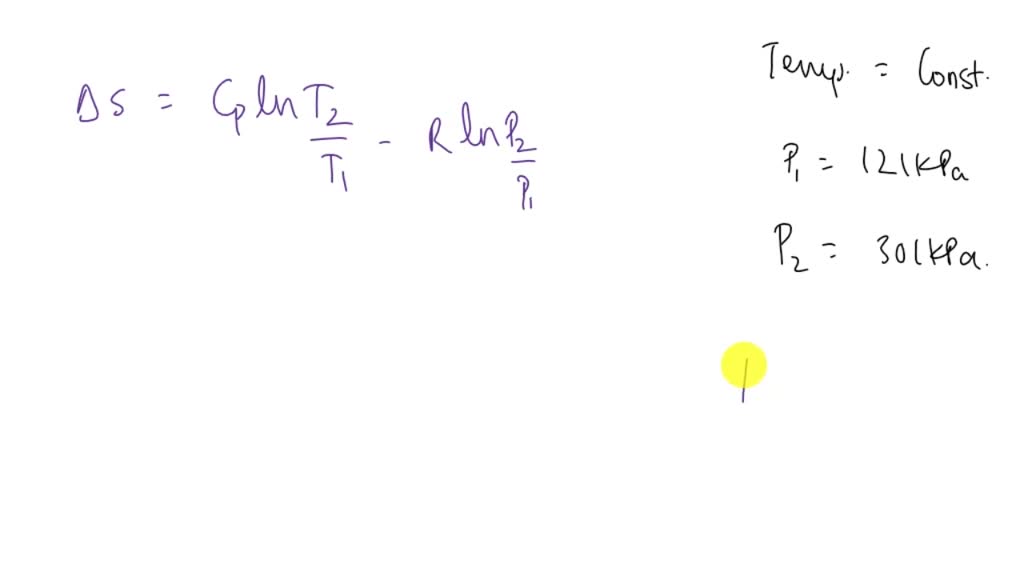 Δs = Cp ln T2/T1 - R ln P2/P1
Temp. = Const.
P1 = 121kPa
P2 = 301kPa.